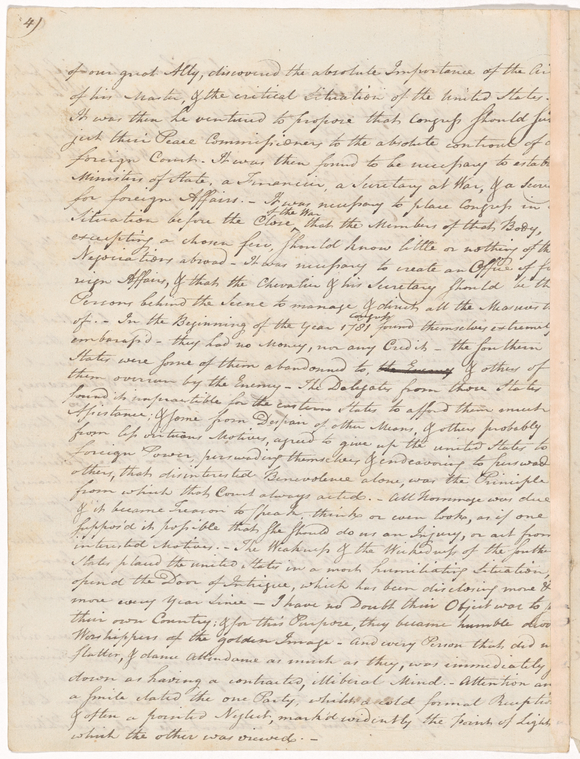 4)
of our great Ally, discovered the absolute Importance of the Ai
of his Master, & the critical Situation of the United States.
It was then he ventured to propose that Congress Should
ject their Peace Commissioners to the absolute controul of a
foreign Court. It was then found to be necessary to estab
Ministers of State, a Financier, a Secretary at War, & a Secre
for foreign Affairs. - It was necessary to place Congress in
of the War
Situation before the Close, that the Members of that Body,
excepting a chosen few, Should know little or nothing of the
Negociations abroad - It was necessary to create an Office of fo
reign Affairs, & that the Chevalier & his Secretary Should be th
Persons behind the Scene to manage & direct all the Measures
of. - In the Beginning of the Year 1781 found themselves extremely
Congress
embarass'd - they had no Money, nor any Credit - the Southern
States were some of them abandoned to, the Enemy & others of
them overrun by the Enemy - The Delegates from those States
found it impracticable for the eastern States to afford them much
Assistance; & some from Despair of other Means, & others probably
from less virtuous Motives, agreed to give up the united States to
foreign Power, perswading themselves & endeavoring to perswad
others, that disinterested Benevolence alone, was the Principle
from which that Court always acted. - All hommage was due
& it became Treason to Speak, think or even look, as if one
suppos'd it possible that She should do us an Injury, or act from
interested Motives. - The Weakness & the Wickedness of the Southe
States placed the united States in a most humiliating Situation,
open'd the Door of Intrigue, which has been disclosing more &
more every Year Since - I have no Doubt their Object was to
their own Country; & for this Purpose, they became humble devo
Worshippers of the golden Image - And every Person that did n
flatter, & dance attendance as much as they, was immediately
down as having a contracted, illiberal Mind. - Attention an
a smile elated the one Party, whilst a cold formal Recepti
& often a pointed Neglect, mark'd evidently the Point of Light
which the other was viewed. -